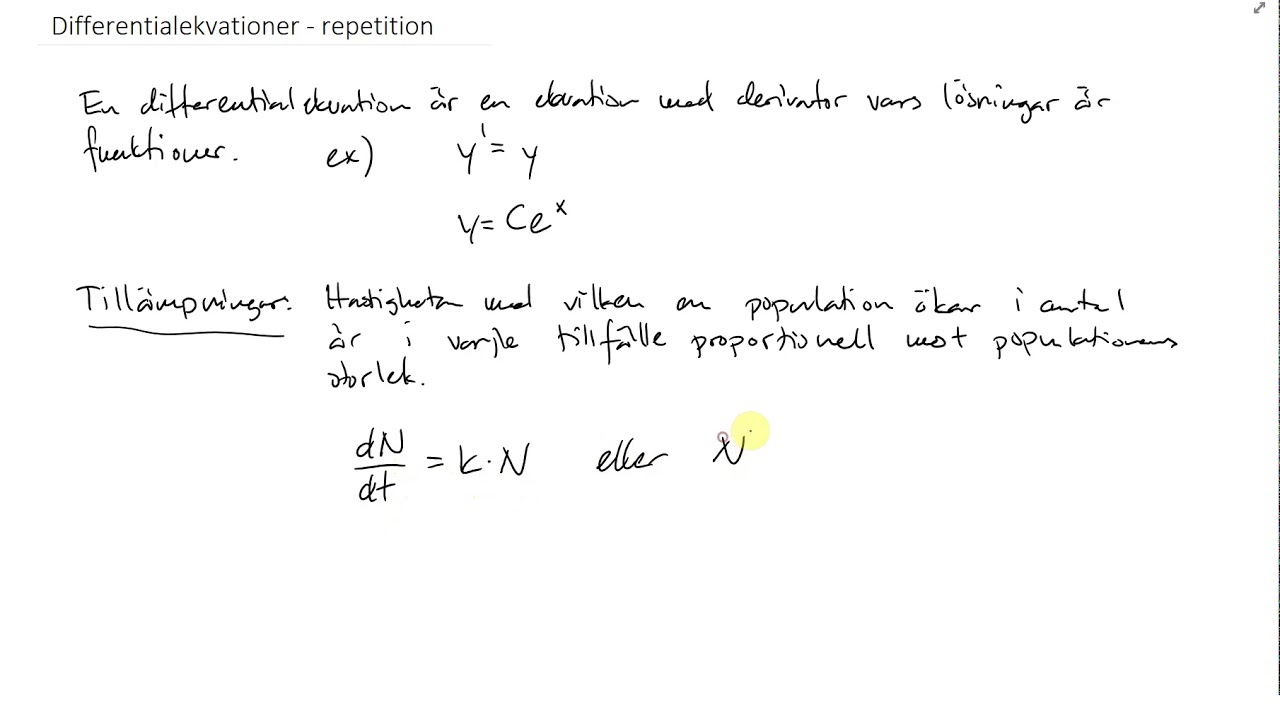 Differentialekvationer - repetition
En differentialekvation är en ekvation med derivator vars lösningar är
funktioner. ex) y' = y
y = Ce^x
Tillämpningar: Hastigheten med vilken en population ökar i antal
är i varje tillfälle proportionell mot populationens
storlek.
dN/dt = k·N eller N